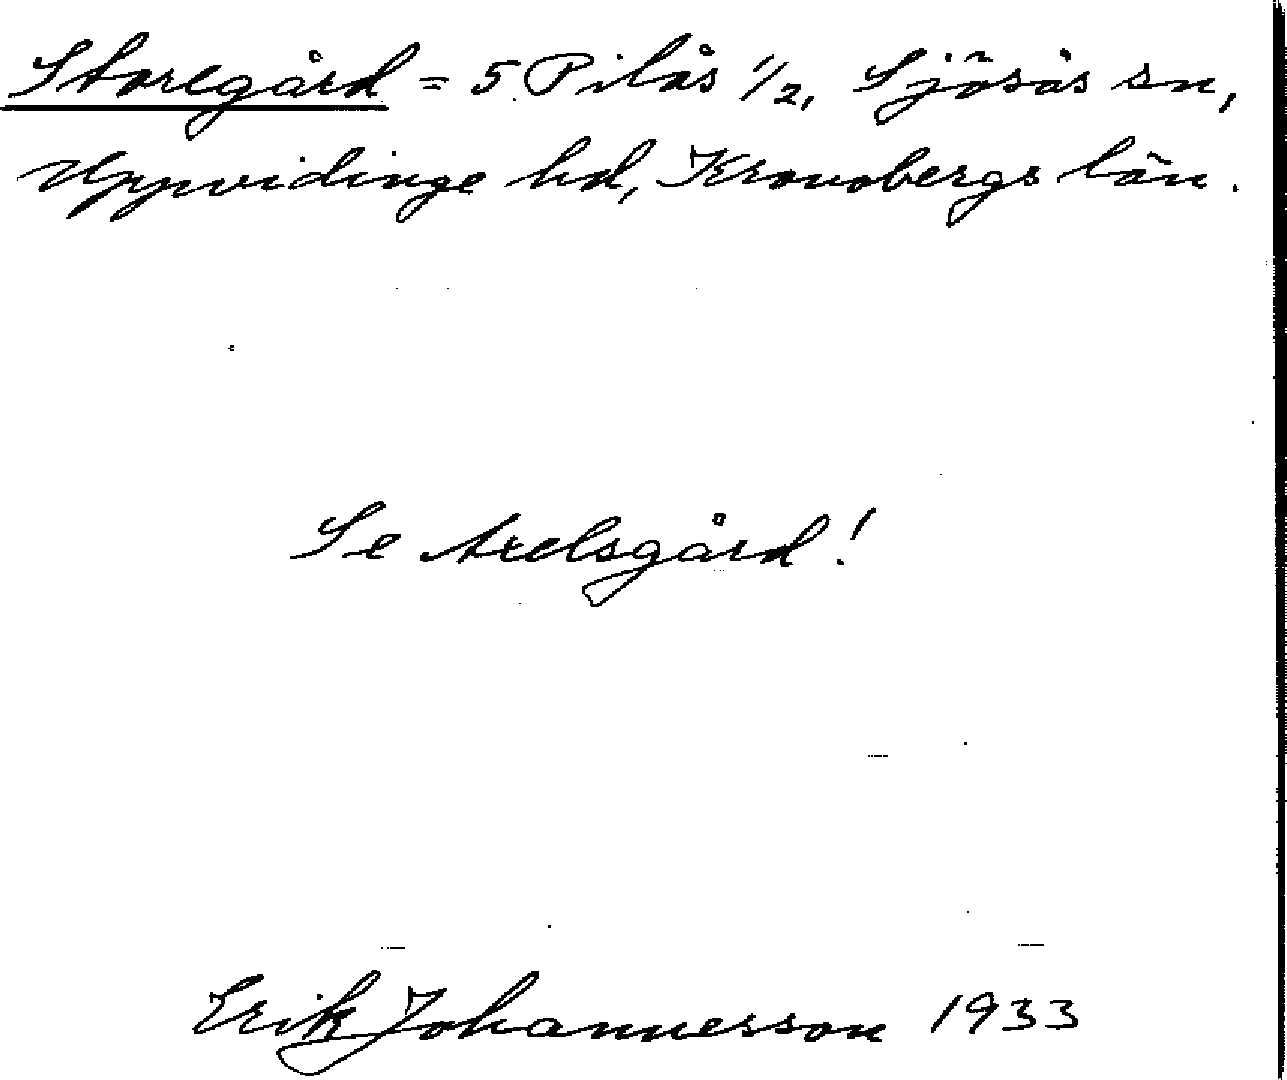 Storegård = 5 Pilås 1/2, Sjösås sn,
Uppvidinge hd, Kronobergs län.
Se Axelsgård!
Erik Johannesson 1933